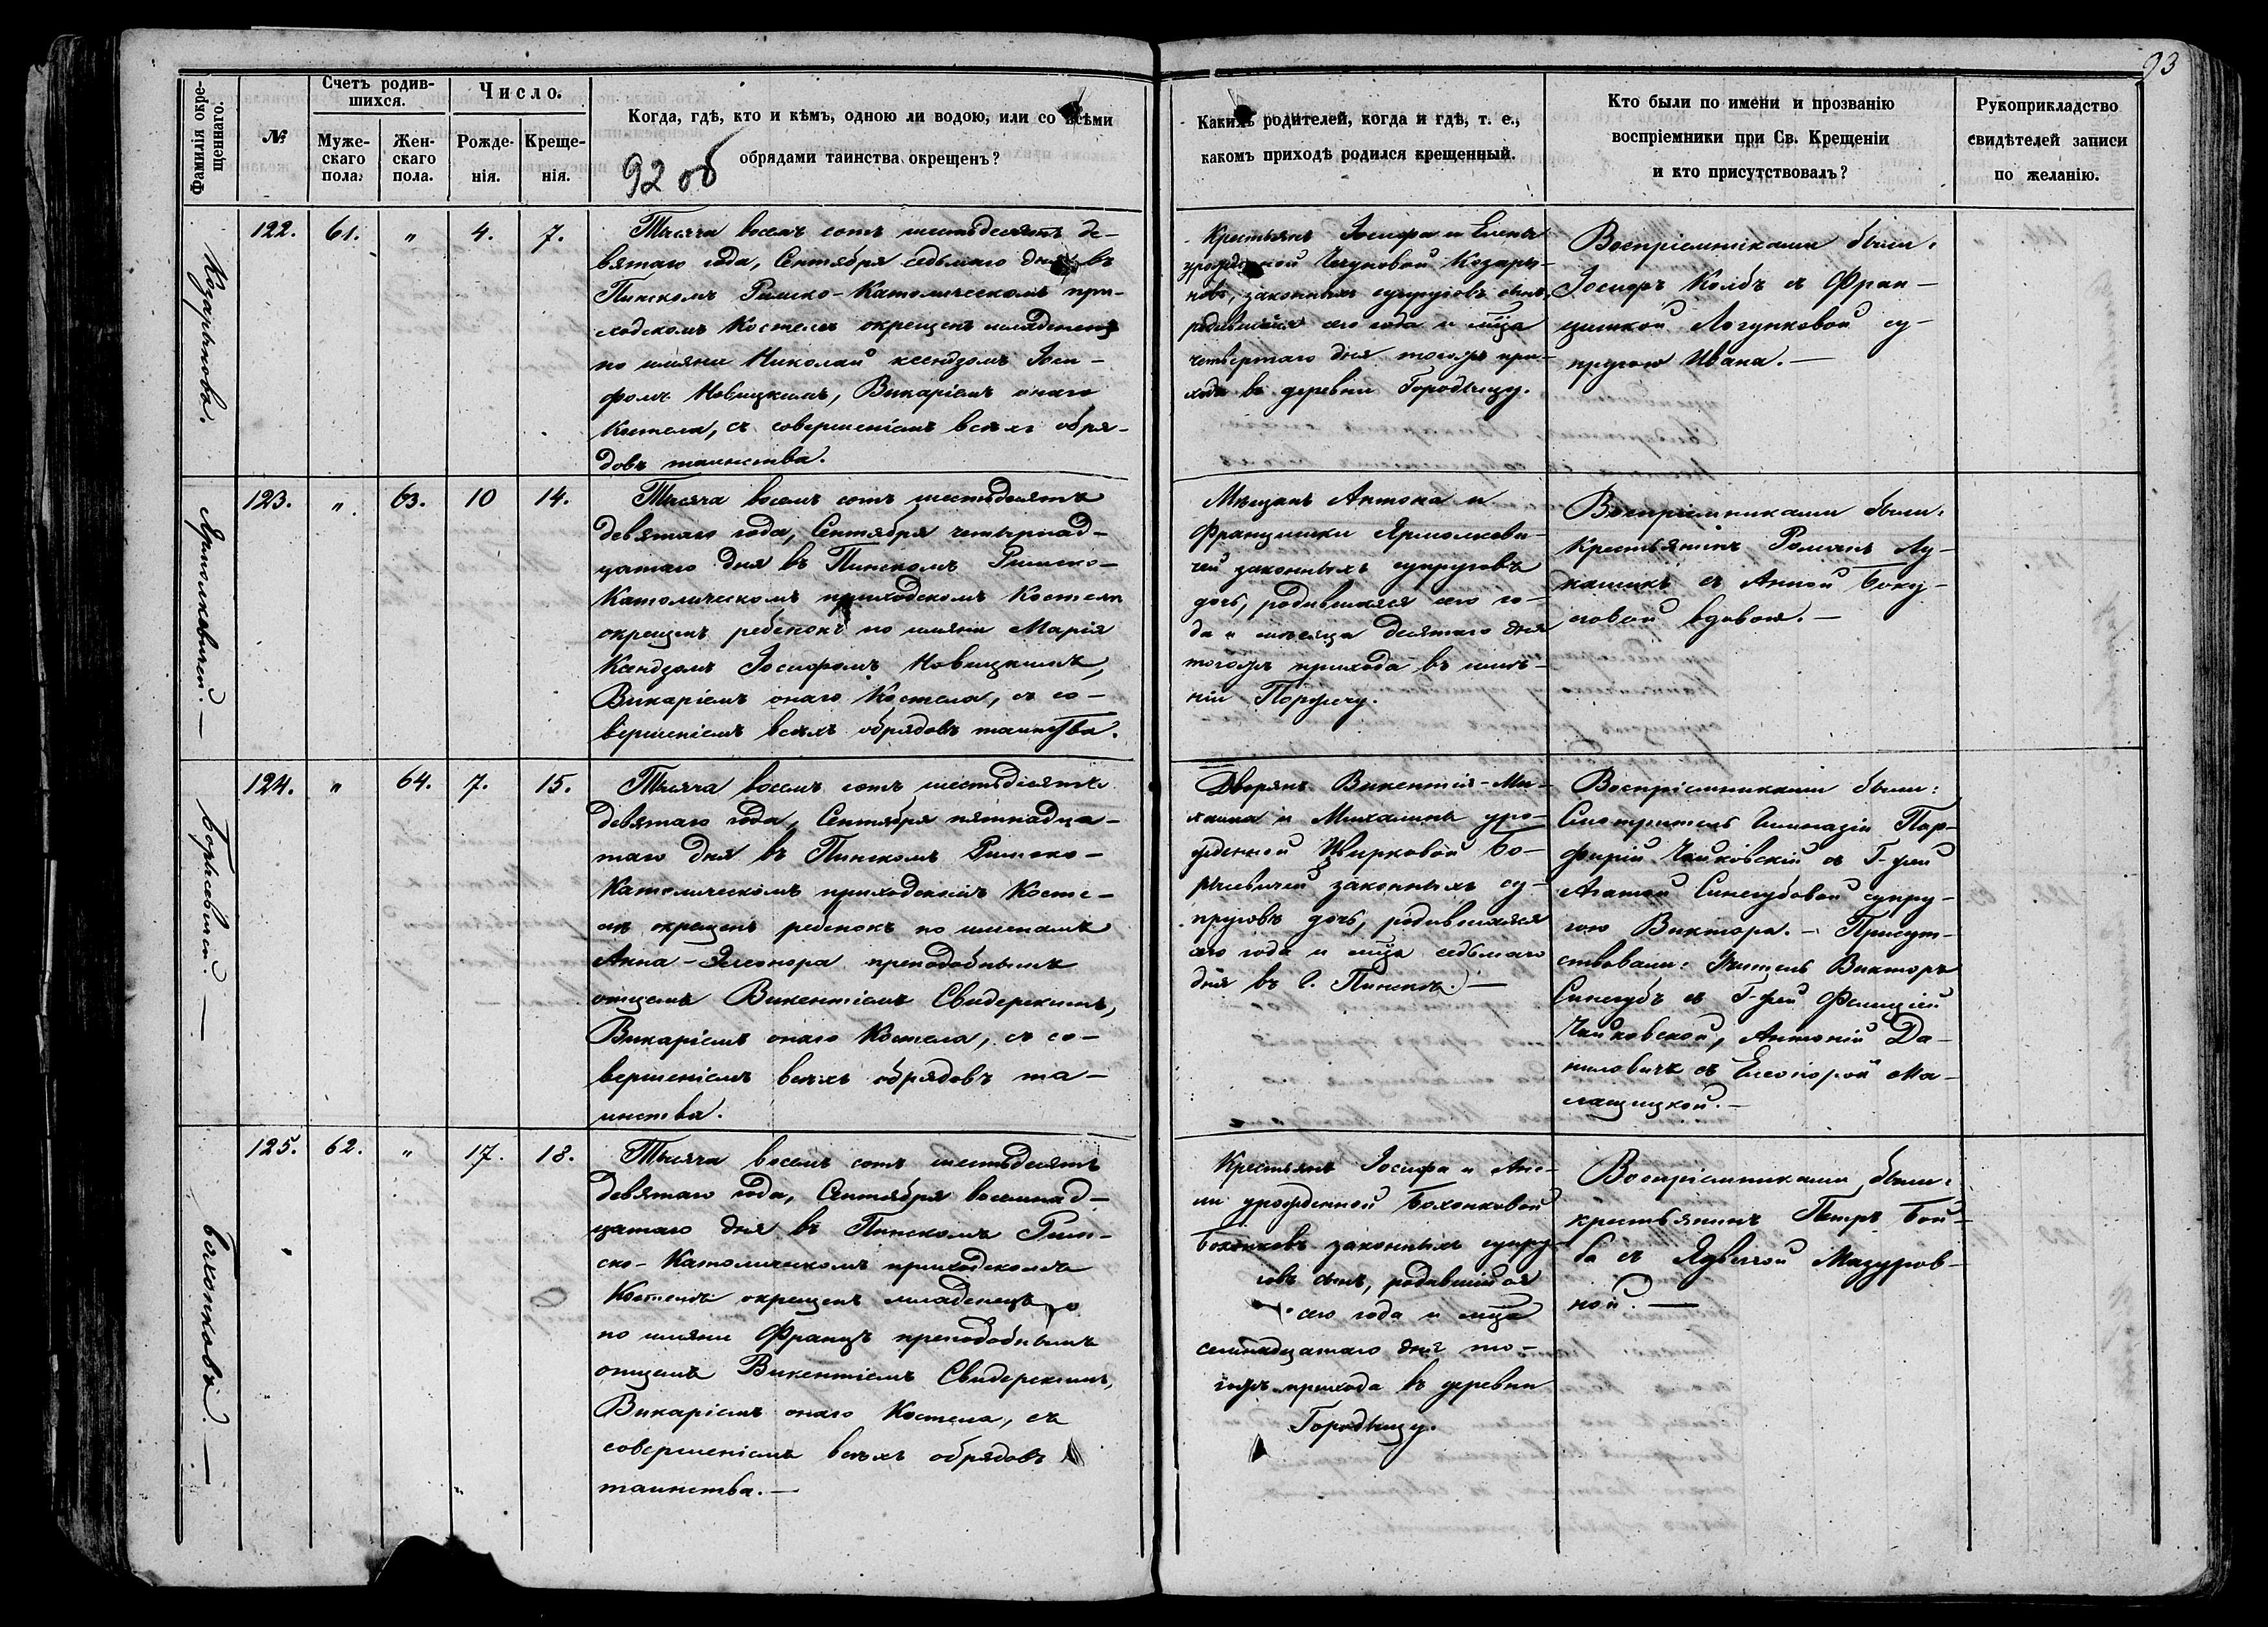 93
Фамилія окре-
щеннаго.
№
Счетъ родив-
шихся.
Муже-
скаго
пола.
Жен-
скаго
пола.
Число.
Рожде-
нія.
Креще-
нія.
Когда, гдѣ, кто и кѣмъ, одною ли водою, или со всѣми
обрядами таинства окрещенъ?
92 об
Какихъ родителей, когда и гдѣ, т. е.,
какомъ приходѣ родился крещенный.
Кто были по имени и прозванію
воспріемники при Св. Крещеніи
и кто присутствовалъ?
Рукоприкладство
свидѣтелей записи
по желанію.
Козарыкова.
122. 61. " 4. 7.
Тысяча восемъ сотъ шестьдесятъ де-
вятаго года, Сентября седьмаго дня въ
Пинскомъ Римско-Католическомъ при-
ходскомъ Костелѣ окрещенъ младенецъ
по имяни Николай ксендзомъ Іоси-
фомъ Новицкимъ, Викаріемъ онаго
Костела, съ совершеніемъ всѣхъ обря-
довъ таинства.
Крестьянъ Іосифа и Елены
урожденной Козары-
новъ, законныхъ супруговъ сынъ,
родившійся сего года и мца
четвертаго дня тогожъ при-
хода въ деревни Городыщу.
Воспріемниками были:
Іосифъ Колбъ съ Фран-
цишкой Логунковой су-
пругою Ивана.—
Ярмолкевичей.—
123. " 63. 10 14.
Тысяча восемъ сотъ шестьдесятъ
девятаго года, Сентября четырнад-
цатаго дня въ Пинскомъ Римско-
Католическомъ приходскомъ Костелѣ
окрещенъ ребенокъ по имяни Марія
Ксндзомъ Іосифомъ Новицкимъ,
Викаріемъ онаго Костела, съ со-
вершеніемъ всѣхъ обрядовъ таинства.
Мѣщанъ Антона и
Францишки Ярмолкеви-
чей законныхъ супруговъ
дочь, родившаяся сего го-
да и мѣсяца десятаго дня
тогожъ прихода въ имѣ-
ніи Поречу.
Воспріемниками были:
Крестьянинъ Романъ Лу-
кашикъ съ Анной Боку-
совой вдовою.—
Борысевичей.—
124. " 64. 7. 15.
Тысяча восемъ сотъ шестьдесятъ
девятаго года, Сентября пятнадца-
таго дня въ Пинскомъ Римско-
Католическомъ приходскомъ Косте-
лѣ окрещенъ ребенокъ по именамъ
Анна-Элеонора преподобнымъ
отцемъ Викентіемъ Свидерскимъ,
Викаріемъ онаго Костела, съ со-
вершеніемъ всѣхъ обрядовъ та-
инства.
Дворянъ Викентія-Ми-
хаила и Михалины уро-
жденной Цвирковой Бо-
рысевичей законныхъ су-
пруговъ дочь, родившаяся
сего года и мца седьмаго
дня въ г. Пинскѣ.—
Воспріемниками были:
Смотритель Гимназіи Пор-
фирій Чайковскій съ Г-жей
Агатой Синегубовой супру-
гою Виктора.— Присут-
ствовали: Учитель Викторъ
Синегубъ съ Г-жей Фелиціей
Чайковской, Антоній Да-
ниловичъ съ Елеонорой Ма-
лащицкой.—
Бохонковъ.—
125. 62. " 17. 18.
Тысяча восемъ сотъ шестьдесятъ
девятаго года, Сентября восемнад-
цатаго дня въ Пинскомъ Рим-
ско-Католическомъ приходскомъ
Костелѣ окрещенъ младенецъ
по имяни Францъ преподобнымъ
отцемъ Викентіемъ Свидерскимъ,
Викаріемъ онаго Костела, съ
совершеніемъ всѣхъ обрядовъ
таинства.—
Крестьянъ Іосифа и
урожденной Бохонковой
Бохонковъ законныхъ супру-
говъ сынъ, родившійся
сего года и мца
семнадцатаго дня то-
гожъ прихода въ деревни
Городыщу.
Воспріемниками были:
крестьянинъ Петръ Бой-
ба съ Ядвигой Мазуров-
ной.—